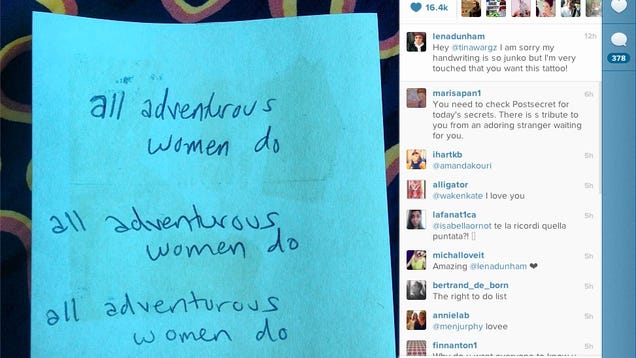 all adventurous
women do
all adventurous
women do
all adventurous
women do
16.4k
lenadunham 12h
Hey @tinawargz I am sorry my
handwriting is so junko but I'm very
touched that you want this tattoo!
marisapan1 6h
You need to check Postsecret for
today's secrets. There is s tribute to
you from an adoring stranger waiting
for you.
ihartkb 5h
@amandakouri
alligator 5h
@wakenkate I love you
lafanat1ca 5h
@isabellaornot te la ricordi quella
puntata?!
michalloveit 5h
Amazing @lenadunham ❤
bertrand_de_born 5h
The right to do list
annielab 5h
@menjurphy lovee
finnanton1 5h
378